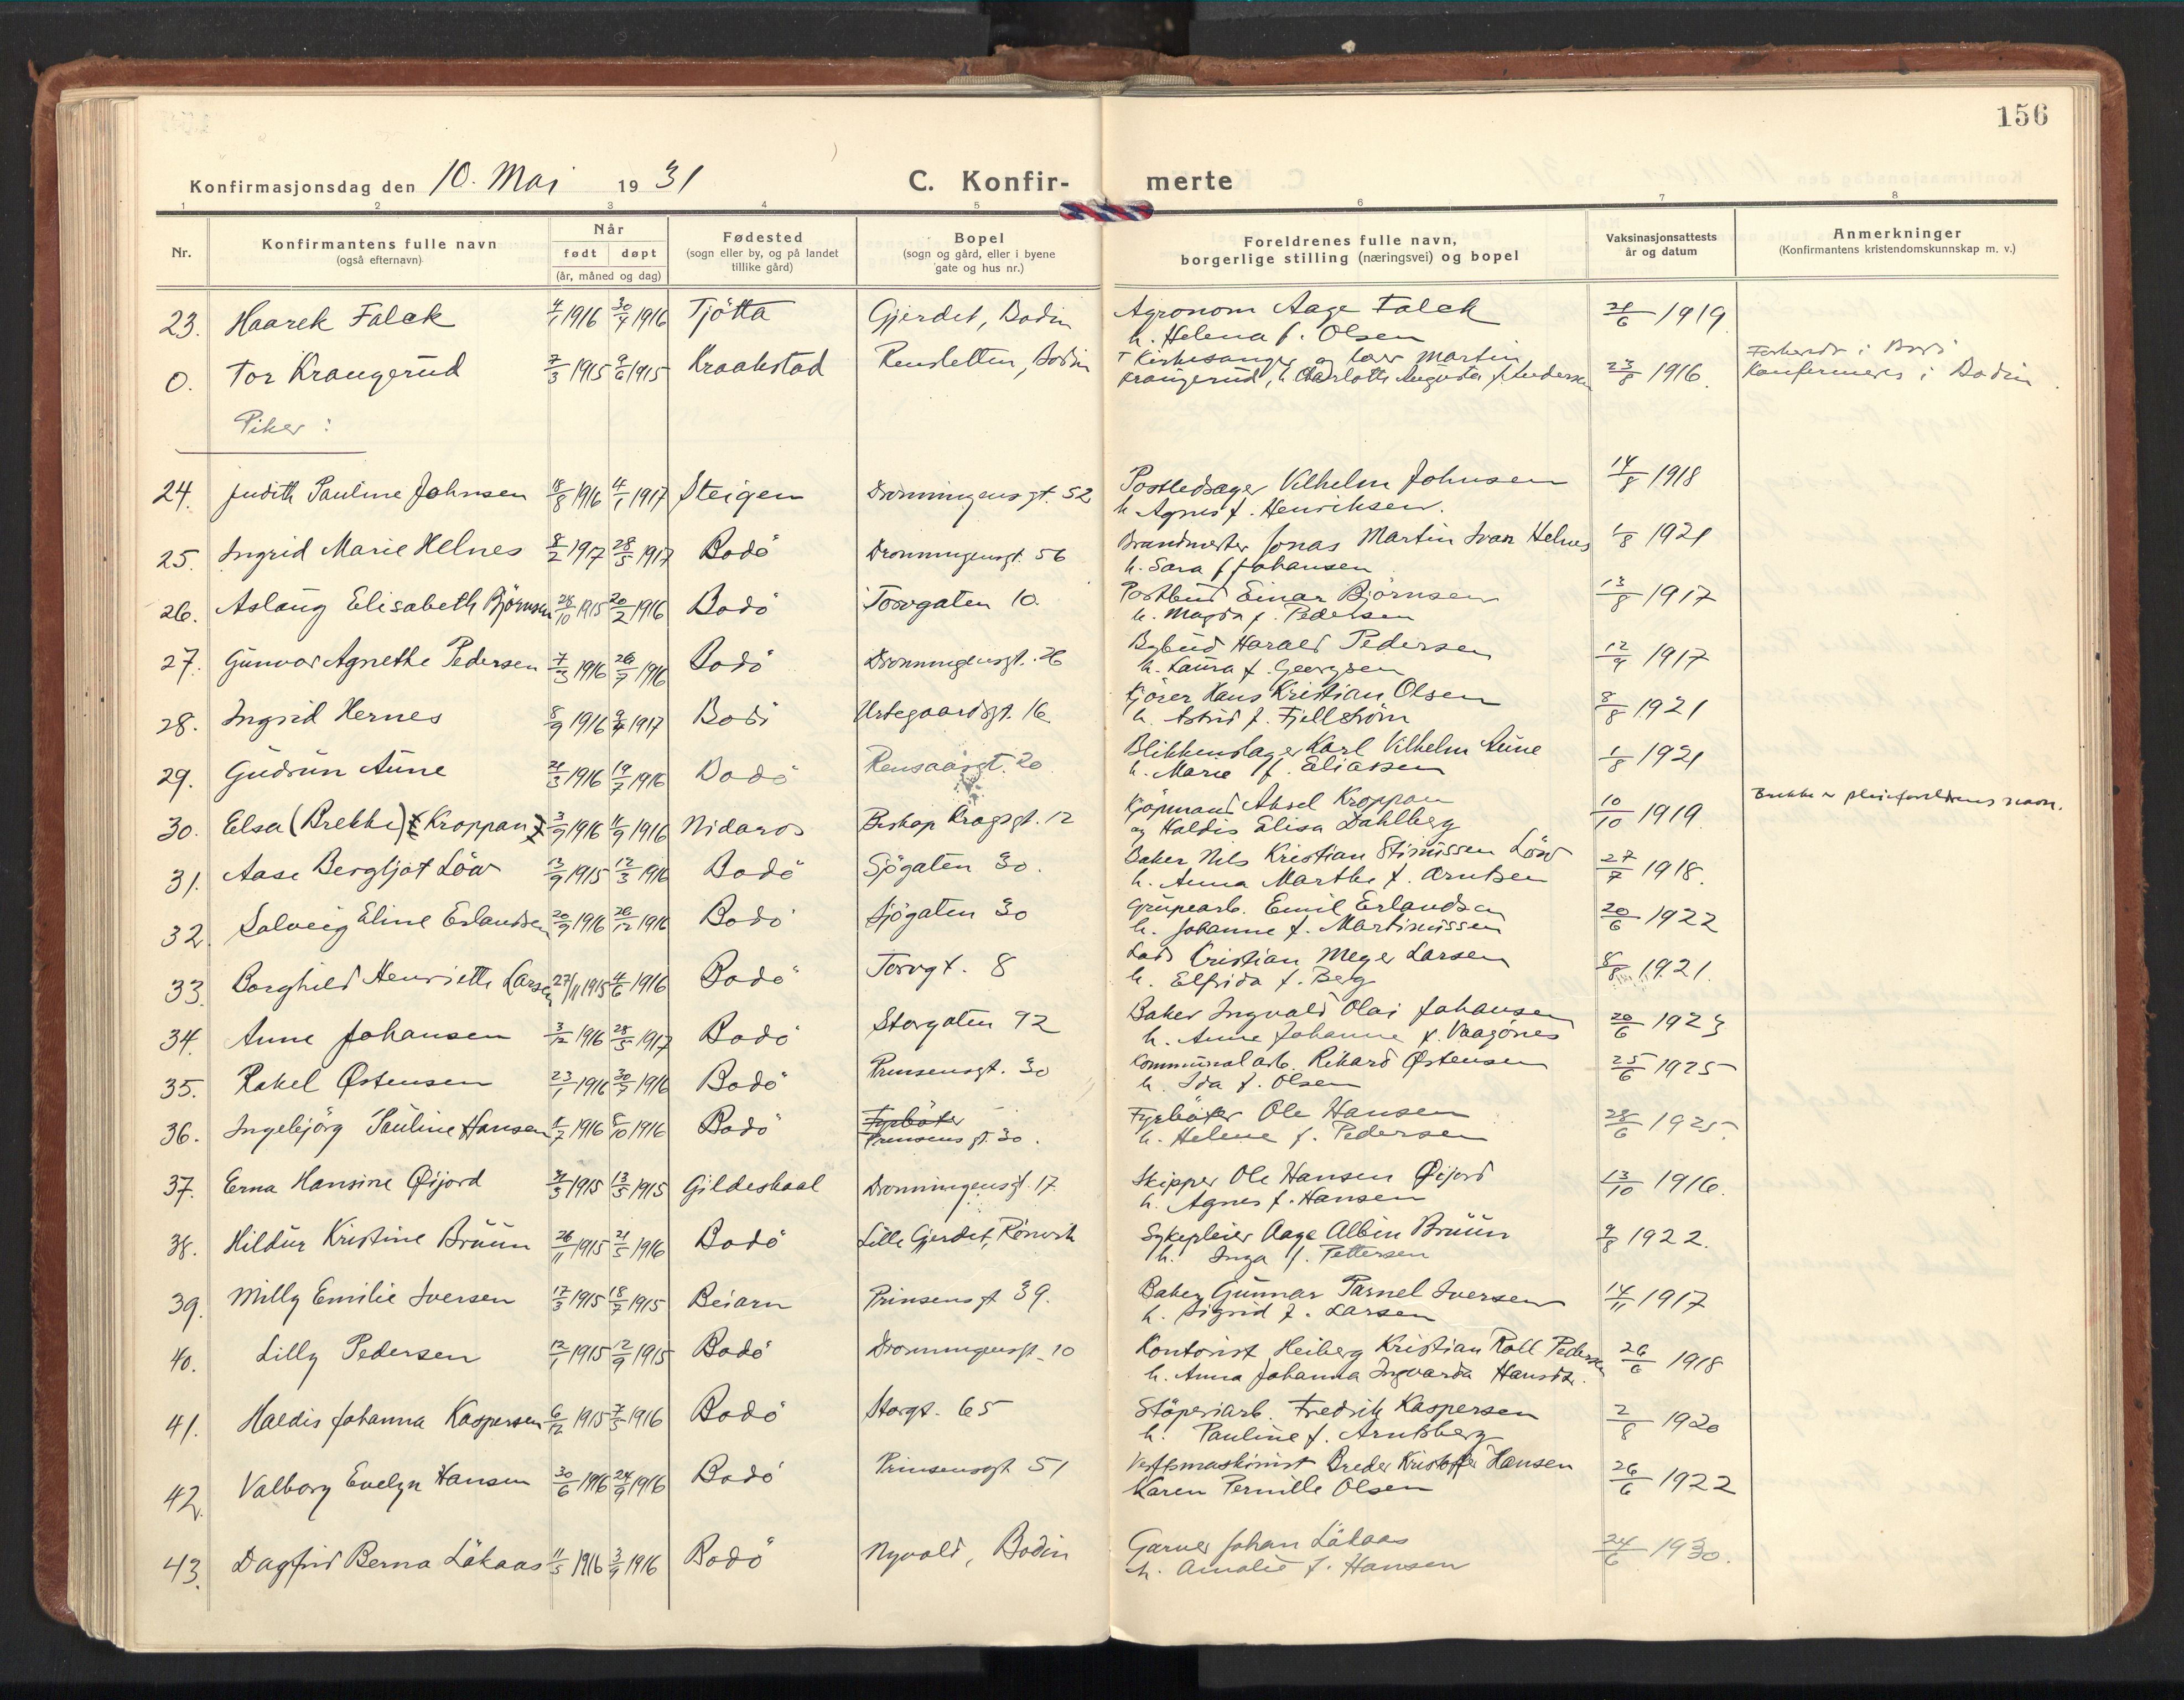 156
Konfirmasjonsdag den 10. Mai 1931 C. Konfir- merte
1 2 3 4 5 6 7 8
Nr. Konfirmantens fulle navn (også efternavn) Når født døpt (år, måned og dag) Fødested (sogn eller by, og på landet tillike gård) Bopel (sogn og gård, eller i byene gate og hus nr.) Foreldrenes fulle navn, borgerlige stilling (næringsvei) og bopel Vaksinasjonsattests år og datum Anmerkninger (Konfirmantens kristendomskunnskap m. v.)
23. Haarek Falck 4/1 1916 30/4 1916 Tjötta Gjerdet, Bodin Agronom Aage Falck 21/6 1919
h. Helena f. Olsen
0. Tor Kraugerud 7/3 1915 9/6 1915 Kraakstad Rensletten, Bodin † Kirkesanger og lærer Martin 23/8 1916 i Bodö
Kraugerud, h. Charlotte Augusta f. Andersen Konfirmeres i Bodin
Piker:
24. Judith Pauline Johnsen 18/8 1916 4/1 1917 Steigen Dronningensgt. 52 Postledsager Vilhelm Johnsen 14/8 1918
h. Agnes f. Henriksen.
25. Ingrid Marie Helnes 8/2 1917 28/5 1917 Bodö Dronningensgt. 56 Brandmester Jonas Martin Ivar Helnes 1/8 1921
h. Sara f. Johansen
26. Aslaug Elisabeth Björnsen 28/10 1915 20/2 1916 Bodö Torvgaten 10. Postbud Einar Björnsen 13/8 1917
h. Magda f. Pedersen
27. Gunvor Agnethe Pedersen 7/3 1916 26/7 1916 Bodö Dronningensgt. 26 Bybud Harald Pedersen 12/9 1917
h. Laura f. Georgsen
28. Ingrid Hernes 8/9 1916 9/4 1917 Bodö Urtegaardsgt. 16 Kjörer Hans Kristian Olsen 8/8 1921
h. Astrid f. Fjellström
29. Gudrun Aune 21/3 1916 19/7 1916 Bodö Rensaasgt. 20 Blikkenslager Karl Vilhelm Aune 1/8 1921
h. Marie f. Eliassen
30. Elsa (Brekke) Kroppan 3/9 1916 11/9 1916 Nidaros Biskop Kragsgt. 12 Kjöpmand Aksel Kroppan 10/10 1919 Brekke er pleieforeldrenes navn.
og Haldis Elisa Dahlberg
31. Aase Bergljot Löw 13/9 1915 12/3 1916 Bodö Sjögaten 30. Baker Nils Kristian Stinussen Löw 27/7 1918.
h. Anna Marthe f. Arntsen
32. Solveig Eline Erlandsen 20/9 1916 26/12 1916 Bodö Sjögaten 30 Grupearb. Emil Erlandsen 20/6 1922
h. Johanne f. Martinussen
33. Borghild Henriette Larsen 27/11 1915 4/6 1916 Bodö Torvgt. 8 Lods Cristian Meyer Larsen 8/8 1921.
h. Elfrida f. Berg
34. Anne Johansen 3/12 1916 28/5 1917 Bodö Storgaten 92 Baker Ingvald Olai Johansen 20/6 1923
h. Anne Johanne f. Vaagönes
35. Rakel Østensen 23/1 1916 30/7 1916 Bodö Prinsensgt. 30 Kommunalarb. Rikard Østensen 25/6 1925
h. Ida f. Olsen
36. Ingebjörg Pauline Hansen 1/7 1916 8/10 1916 Bodö Fyrböter Fyrböter Ole Hansen 28/6 1925.
Prinsensgt. 30. h. Helene f. Pedersen
37. Erna Hansine Øijord 31/3 1915 13/5 1915 Gildeskaal Dronningensgt. 17. Skipper Ole Hansen Øijord 13/10 1916.
h. Agnes f. Hansen
38. Hildur Kristine Bruun 26/11 1915 21/5 1916 Bodö Lille Gjerdet, Rönvik Sykepleier Aage Albin Bruun 9/8 1922.
h. Inga f. Pettersen
39. Milly Emilie Iversen 17/3 1915 18/7 1915 Beiarn Prinsensgt 39. Baker Gunnar Parnel Iversen 14/11 1917
h. Sigrid f. Larsen
40. Lilly Pedersen 12/1 1915 12/9 1915 Bodö Dronningensgt. 10 Kontorist Heiberg Kristian Roll Pedersen 26/6 1918
h. Anna Johanna Ingvarda
41. Haldis Johanna Kaspersen 6/12 1915 7/5 1916 Bodö Storgt. 65 Stöperiarb. Fredrik Kaspersen 2/8 1920
h. Pauline f. Arntsberg
42. Valborg Evelyn Hansen 30/6 1916 24/9 1916 Bodö Prinsensgt 51 Breder Kristoffer Hansen 26/6 1922
Karen Pernille Olsen
43. Dagfrid Berna Låkaas 11/5 1916 3/9 1916 Bodö Nyvold, Bodin Garver Johan Låkaas 24/6 1930.
h. Amalie f. Hansen